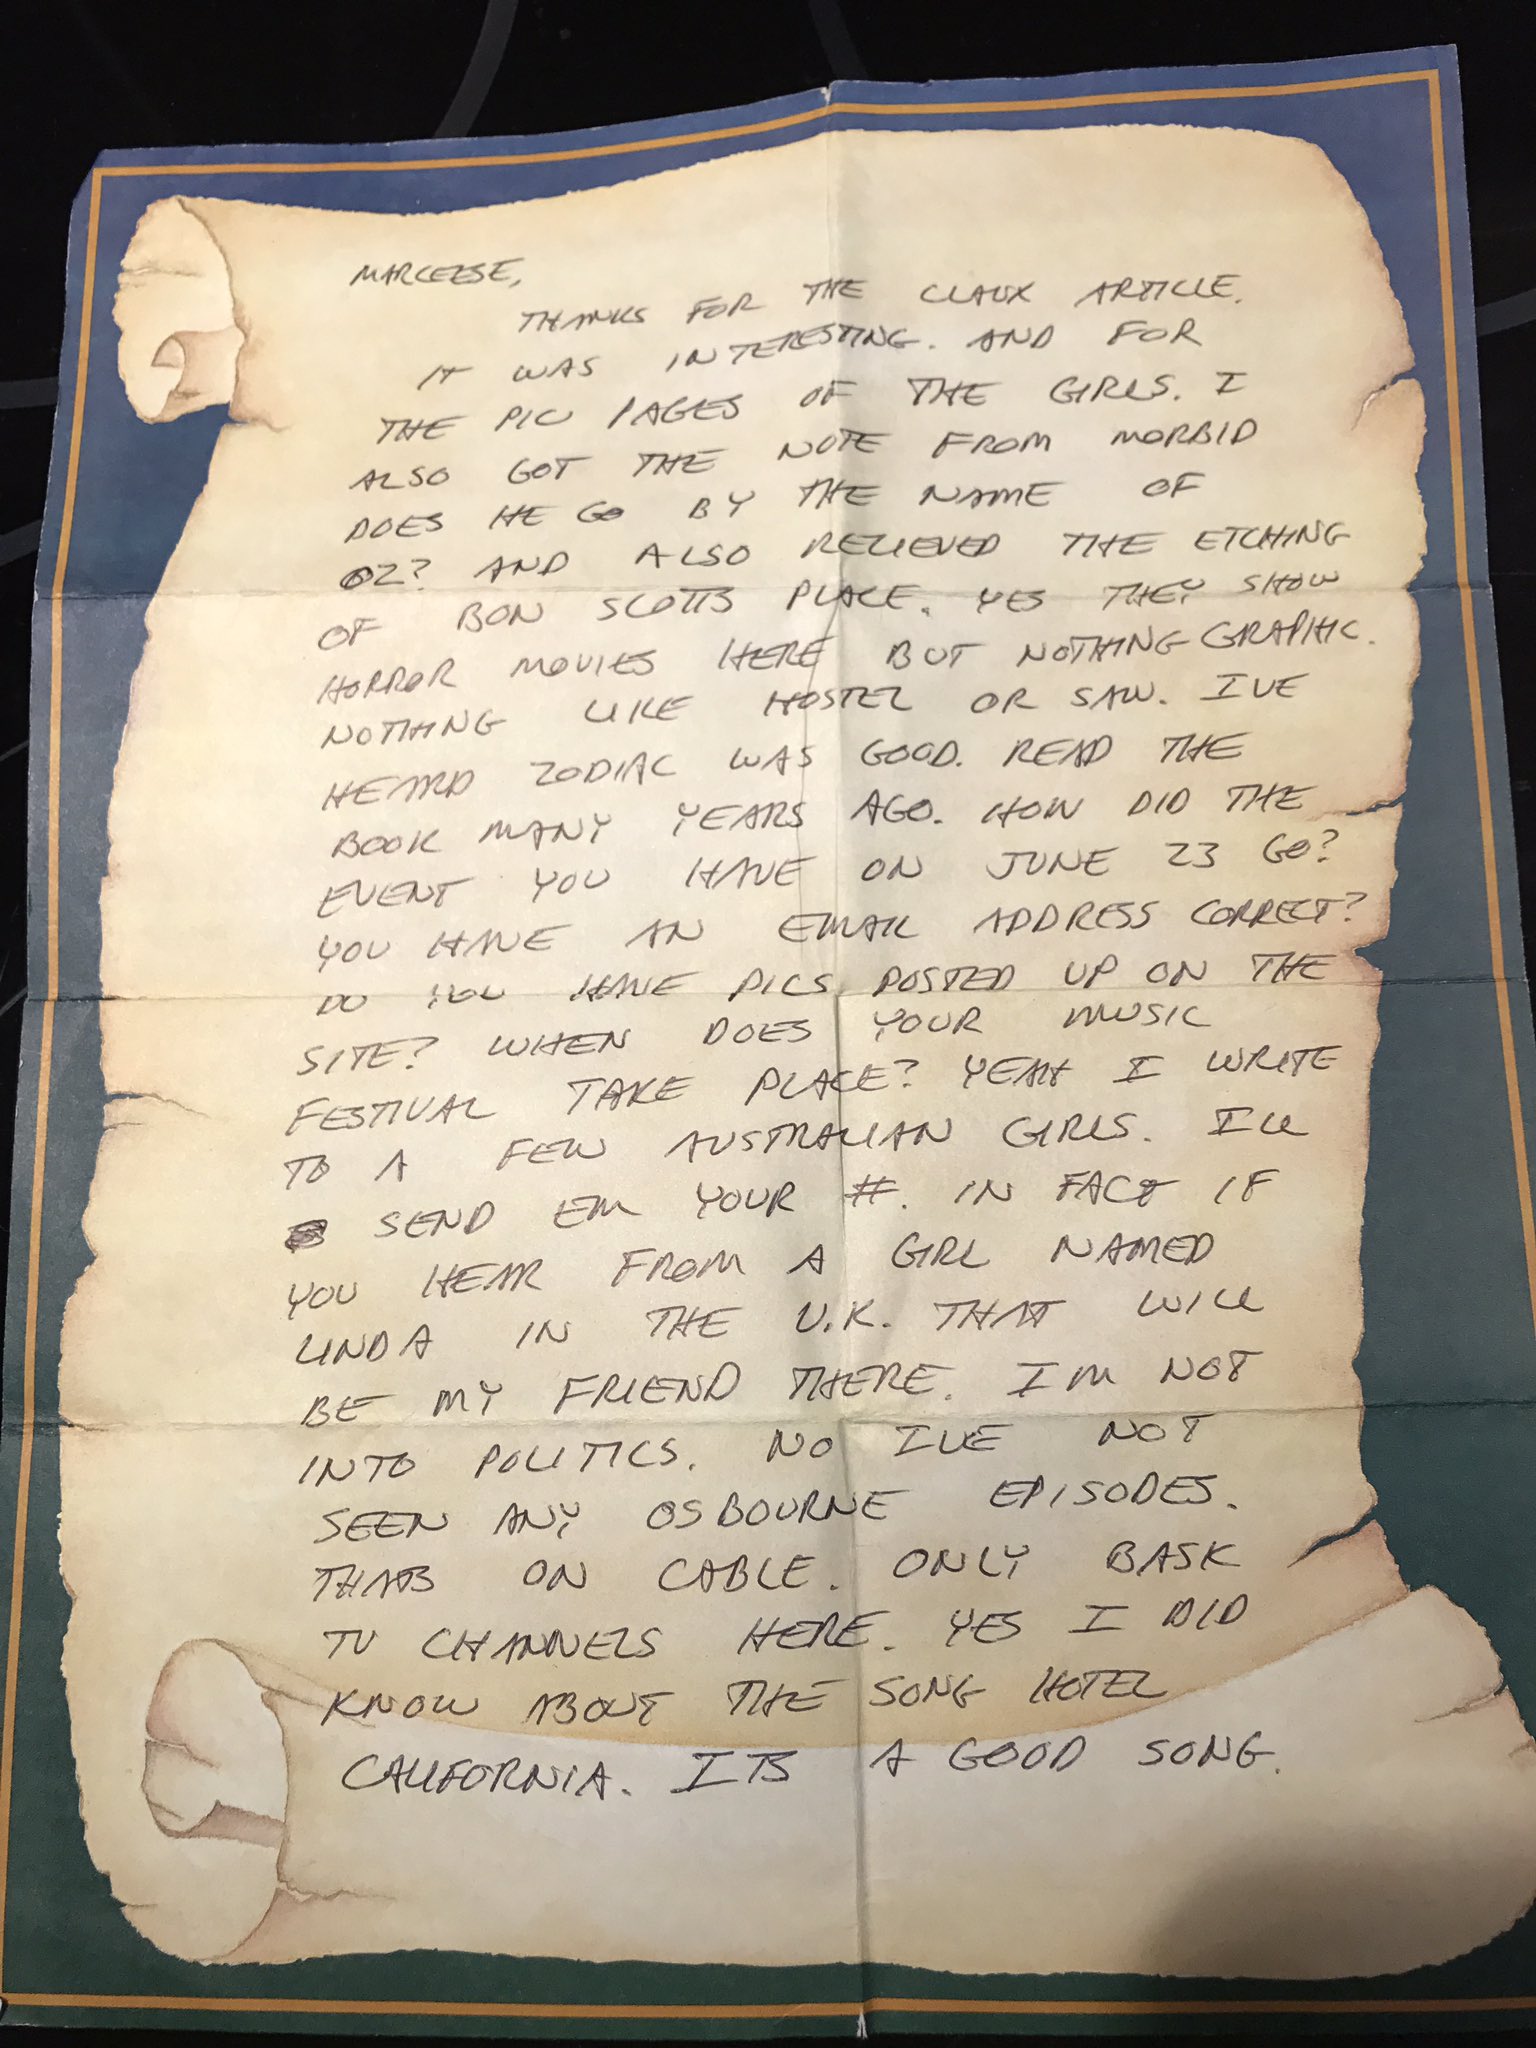 MARCEESE,
THANKS FOR THE CLAUX ARTICLE.
IT WAS INTERESTING. AND FOR
THE PIC PAGES OF THE GIRLS. I
ALSO GOT THE NOTE FROM MORBID
DOES HE GO BY THE NAME OF
OZ? AND ALSO RECIEVED THE ETCHING
OF BON SCOTTS PLACE. YES THEY SHOW
HORROR MOVIES HERE BUT NOTHING GRAPHIC.
NOTHING LIKE HOSTEL OR SAW. IVE
HEARD ZODIAC WAS GOOD. READ THE
BOOK MANY YEARS AGO. HOW DID THE
EVENT YOU HAVE ON JUNE 23 GO?
YOU HAVE AN EMAIL ADDRESS CORRECT?
DO YOU HAVE PICS POSTED UP ON THE
SITE? WHEN DOES YOUR MUSIC
FESTIVAL TAKE PLACE? YEAH I WRITE
TO A FEW AUSTRALIAN GIRLS. ILL
SEND EM YOUR #. IN FACT IF
YOU HEAR FROM A GIRL NAMED
LINDA IN THE U.K. THAT WILL
BE MY FRIEND THERE. IM NOT
INTO POLITICS. NO IVE NOT
SEEN ANY OSBOURNE EPISODES.
THATS ON CABLE. ONLY BASIC
TV CHANNELS HERE. YES I DID
KNOW ABOUT THE SONG HOTEL
CALIFORNIA. ITS A GOOD SONG.